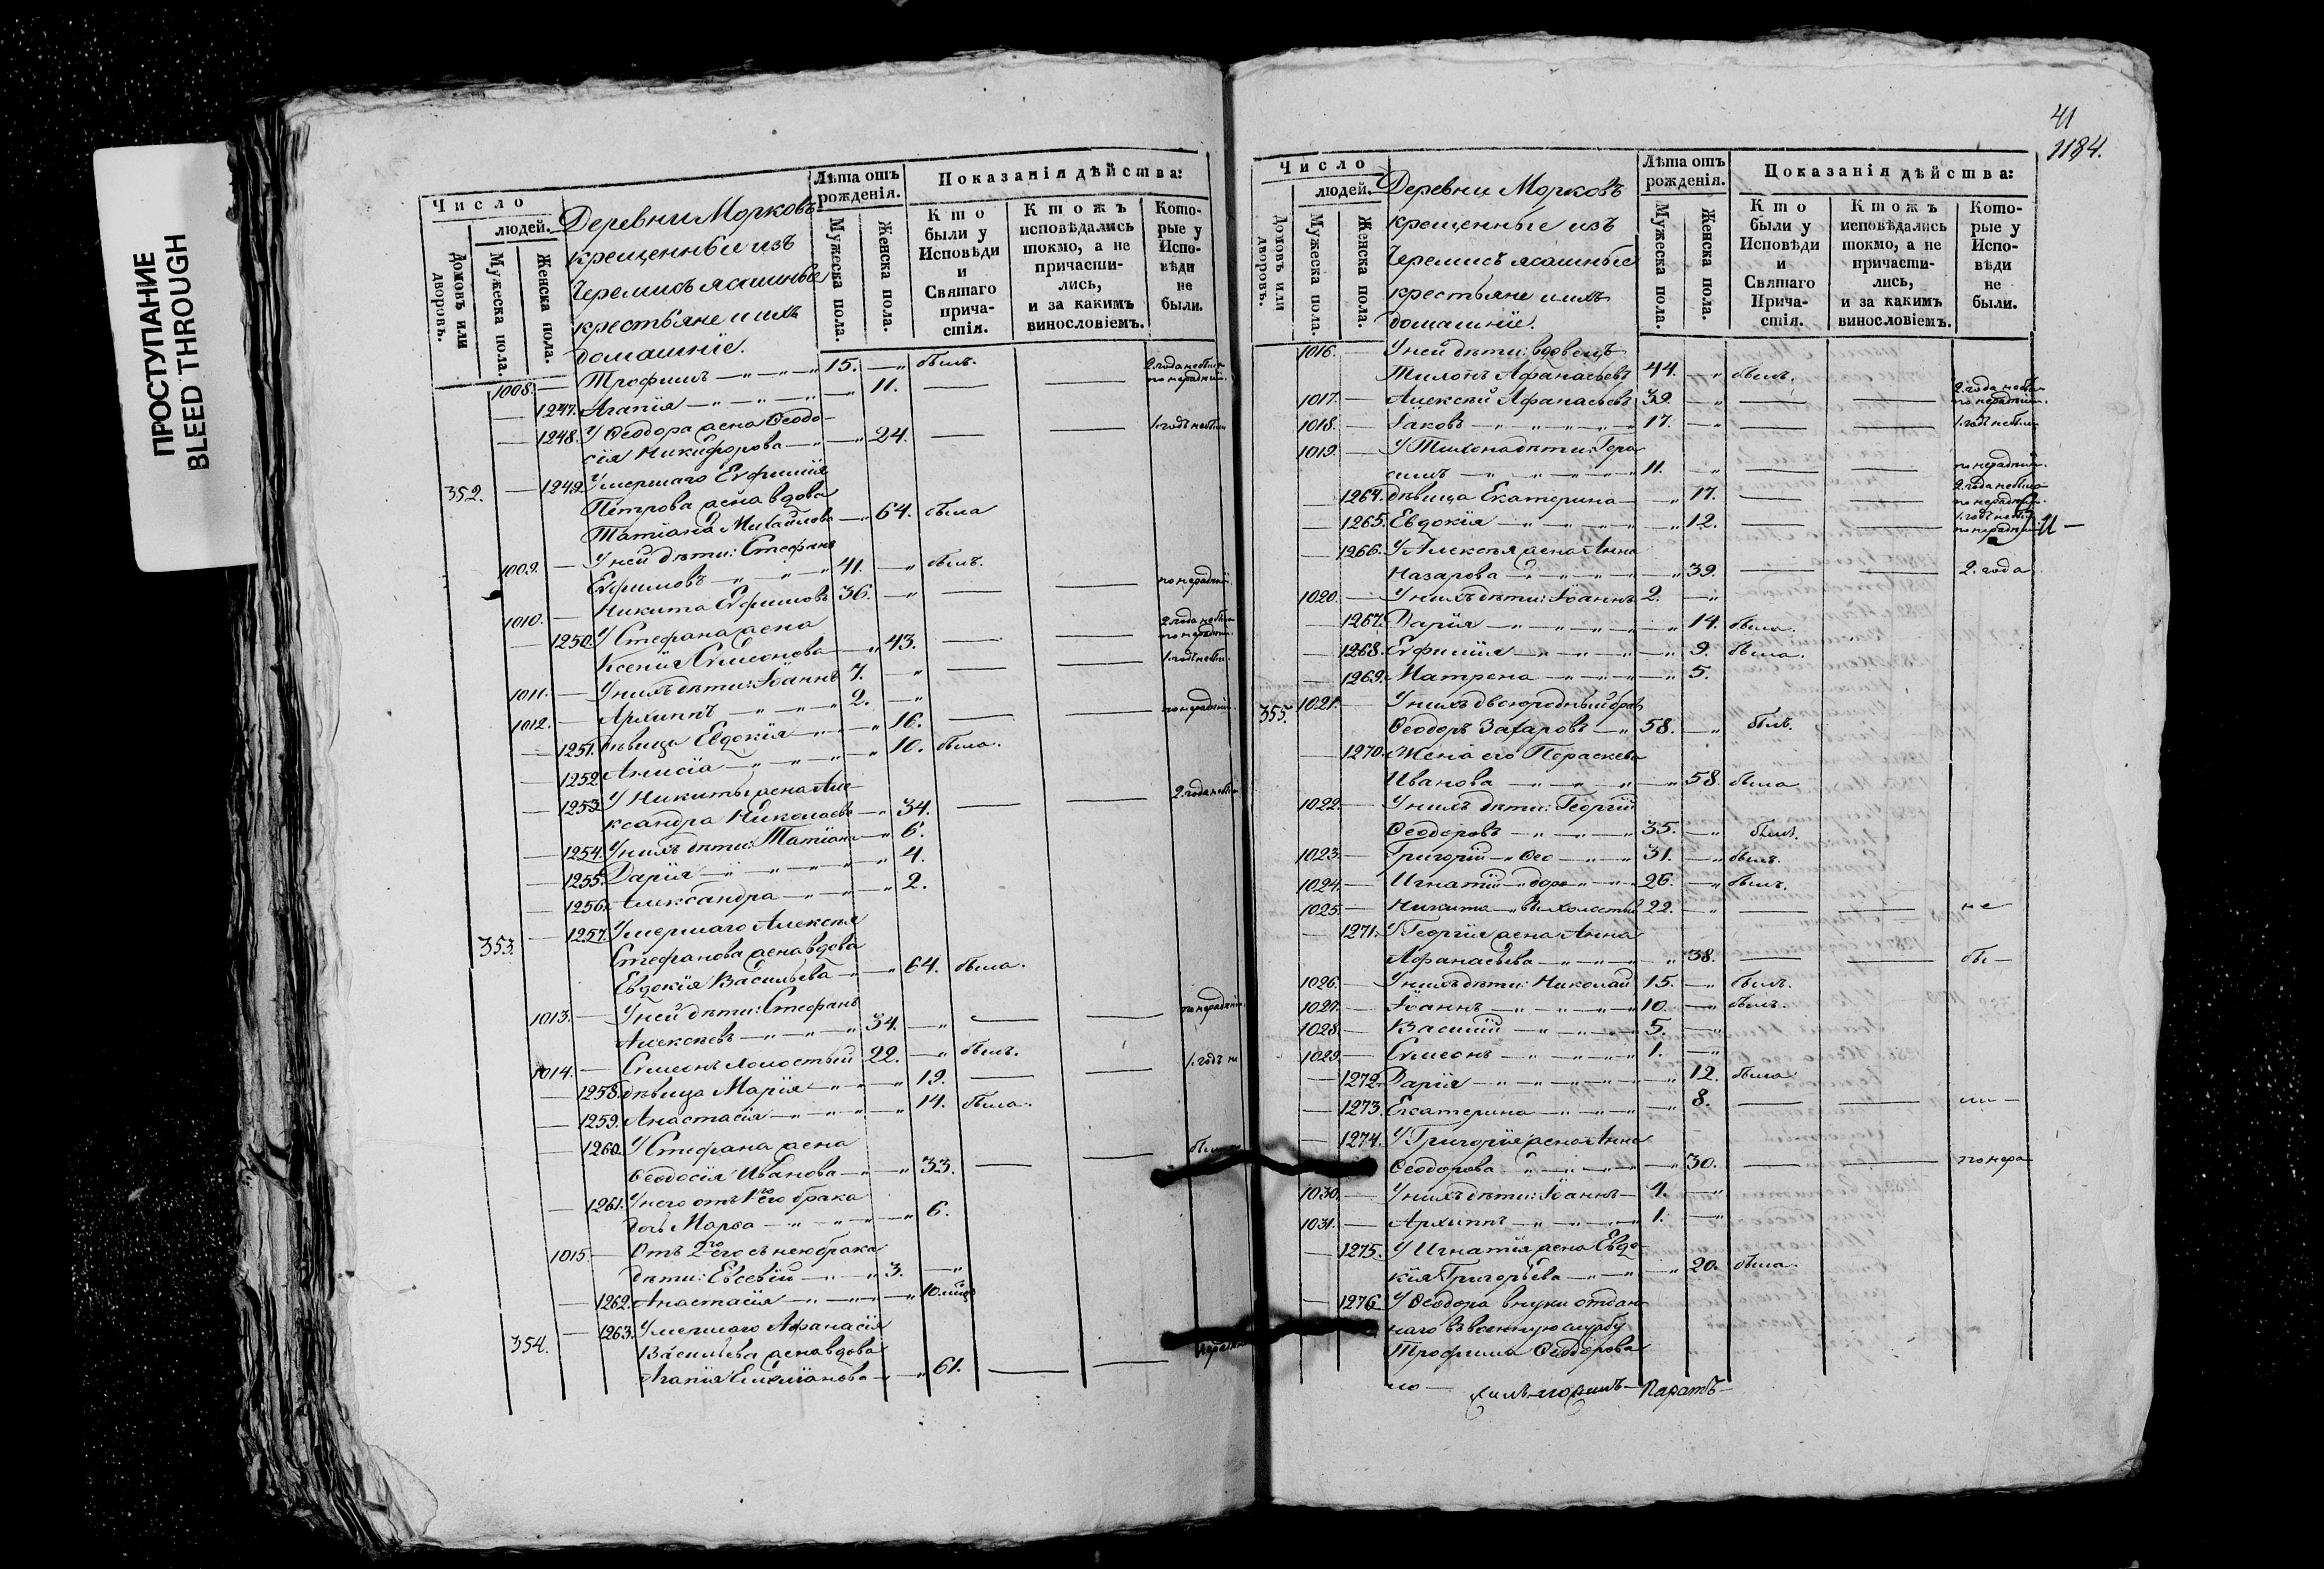 ПРОСТУПАНИЕ
BLEED THROUGH
Число
людей.
Домовъ или дворовъ.
Мужеска пола.
Женска пола.
Деревни Морковъ
крещенные изъ
Черемисъ ясашные
крестьяне и ихъ
домашнïе.
Лѣта отъ рожденія.
Мужеска пола.
Женска пола.
Показанія дѣйства:
Кто были у Исповѣди и Святаго причастія.
Ктожъ исповѣдались токмо, а не причастились, и за какимъ винословіемъ.
Которые у Исповѣди не были.
1008. — Трофимъ — 15. — былъ.
— 1247. Агапїя — 11. — — 2. года не были по нерадѣнїю.
— 1248. У Ѳеодора жена Ѳеодо-
сїя Никифорова — 24. — — 1. годъ не была
352. — 1249. Умершаго Евфимїя
Петрова жена вдова
Татїана Михайлова — 64. была
1009. — У ней дѣти: Стефанъ
Евфимовъ — 41. — былъ.
1010. — Никита Евфимовъ 36. — — — по нерадѣнїю.
— 1250. У Стефана жена
Ксенїя Сѵмеонова — 43. — — 2. года не была по нерадѣнїю.
1011. — У нихъ дѣти: Іоаннъ 7. — — — 1. годъ не былъ
1012. — Архиппъ — 2. —
— 1251. Дѣвица Евдокїя — 16. — — по нерадѣнїю.
— 1252. Анисїа — 10. была.
— 1253. У Никиты жена Але-
ксандра Николаева — 34. — — 2. года не была
— 1254. У нихъ дѣти: Татїана — 6.
— 1255. Дарїя — 4.
— 1256. Александра — 2.
353. — 1257. Умершаго Алексѣя
Стефанова жена вдова
Евдокїя Васильева — 64. была.
1013. — У ней дѣти: Стефанъ
Алексѣевъ — 34. — — — по нерадѣнїю.
1014. — Сѵмеонъ холостый 22. — былъ.
— 1258. Дѣвица Марїя — 19. — — 1. годъ не
— 1259. Анастасїя — 14. была.
— 1260. У Стефана жена
Ѳеодосїя Иванова — 33. — —
— 1261. У него отъ 1го его брака
дочь Марѳа — 6.
1015. — Отъ 2го его съ нею брака
дѣти: Евсевїй — 3. —
— 1262. Анастасїя — 10.
354. — 1263. Умершаго Афанасїя
Васильева жена вдова
Агапїя Емелїанова — 61. — —
41
1184.
Число
людей.
Домовъ или дворовъ.
Мужеска пола.
Женска пола.
Деревни Морковъ
крещенные изъ
Черемисъ ясашные
крестьяне и ихъ
домашнїе.
Лѣта отъ рожденія.
Мужеска пола.
Женска пола.
Показанія дѣйства:
Кто были у Исповѣди и Святаго Причастія.
Ктожъ исповѣдались токмо, а не причастились, и за какимъ винословіемъ.
Которые у Исповѣди не были.
1016. — У ней дѣти: вдовецъ
Тихонъ Афанасьевъ 44. — былъ.
1017. — Алексѣй Афанасьевъ 39. — — — 2. года не былъ по нерадѣнїю.
1018. — Іаковъ — 17. — — — 1. годъ не былъ
1019. — У Тихона дѣти: Гера-
симъ — 11. — — — по нерадѣнїю.
— 1264. Дѣвица Екатерина — 17. — — 2. года не была по нерадѣнїю.
— 1265. Евдокїя — 12. — — 1. годъ не была по нерадѣнїю
— 1266. У Алексѣя жена Анна
Назарова — 39. — — 2. года
1020. — У нихъ дѣти: Іоаннъ 2. —
— 1267. Дарїя — 14. была.
— 1268. Евфимїя — 9. была.
— 1269. Матрена — 5.
355. 1021. — У нихъ двоюродный братъ
Ѳеодоръ Захаровъ — 58. — былъ.
— 1270. Жена его Параскева
Иванова — 58. была
1022. — У нихъ дѣти: Георгїй
Ѳеодоровъ — 35. — былъ.
1023. — Григорїй — Ѳео — 31. — былъ.
1024. — Игнатїй — доро — 26. — былъ.
1025. — Никита — вы холостый 22. — — — не
— 1271. У Георгїя жена Анна
Афанасьева — 38. — — бы —
1026. — У нихъ дѣти: Николай 15. — былъ.
1027. — Іоаннъ — 10. — былъ.
1028. — Василїй — 5. —
1029. — Сѵмеонъ — 1. —
— 1272. Дарїя — 12. была
— 1273. Екатерина — 8. — — ли —
— 1274. У Григорїя жена Анна
Ѳеодорова — 30. — — по нера
1030. — У нихъ дѣти: Іоаннъ — 4. —
1031. — Архиппъ — 1. —
— 1275. У Игнатїя жена Евдо-
кїя Григорьева — 20. была.
— 1276. У Ѳеодора внуки отдан-
наго въ военную службу
Трофима Ѳеодорова